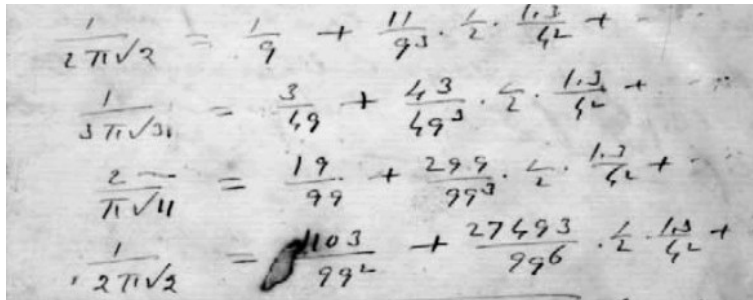 1/(2π√2) = 1/9 + 11/9³ · 1/2 · 1.3/4² + ...
1/(3π√3) = 3/49 + 43/49³ · 1/2 · 1.3/4² + ...
2/(π√11) = 19/99 + 299/99³ · 1/2 · 1.3/4² + ...
1/(2π√2) = 1103/99² + 27493/99⁶ · 1/2 · 1.3/4² +